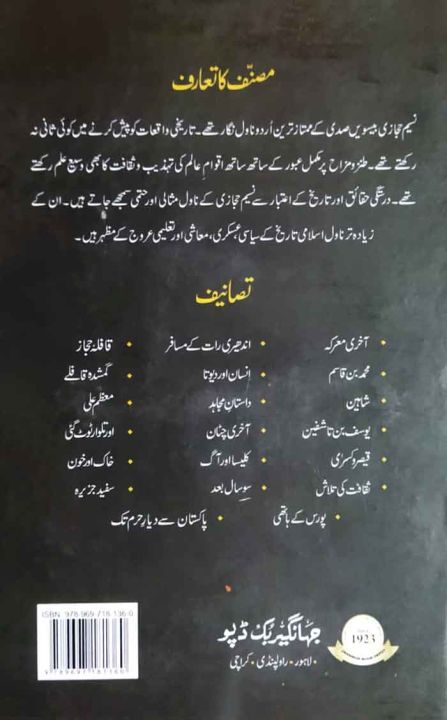 مصنّف کا تعارف
نسیم حجازی بیسویں صدی کے ممتاز ترین اُردو ناول نگار تھے۔ تاریخی واقعات کو پیش کرنے میں کوئی ثانی نہ
رکھتے تھے۔ طنز و مزاح پر مکمل عبور کے ساتھ ساتھ اقوامِ عالم کی تہذیب و ثقافت کا بھی وسیع علم رکھتے
تھے۔ درستگی حقائق اور تاریخ کے اعتبار سے نسیم حجازی کے ناول مثالی اور حتمی سمجھے جاتے ہیں۔ ان کے
زیادہ تر ناول اسلامی تاریخ کے سیاسی، عسکری، معاشی اور تعلیمی عروج کے مظہر ہیں۔
تصانیف
• آخری معرکہ • اندھیری رات کے مسافر • قافلۂ حجاز
• محمد بن قاسم • انسان اور دیوتا • گمشدہ قافلے
• شاہین • داستانِ مجاہد • معظم علی
• یوسف بن تاشفین • آخری چٹان • اور تلوار ٹوٹ گئی
• قیصر و کسریٰ • کلیسا اور آگ • خاک اور خون
• ثقافت کی تلاش • سو سال بعد • سفید جزیرہ
• پورس کے ہاتھی • پاکستان سے دیارِ حرم تک
ISBN: 978-969-718-136-0
جہانگیر بک ڈپو
• لاہور • راولپنڈی • کراچی
1923